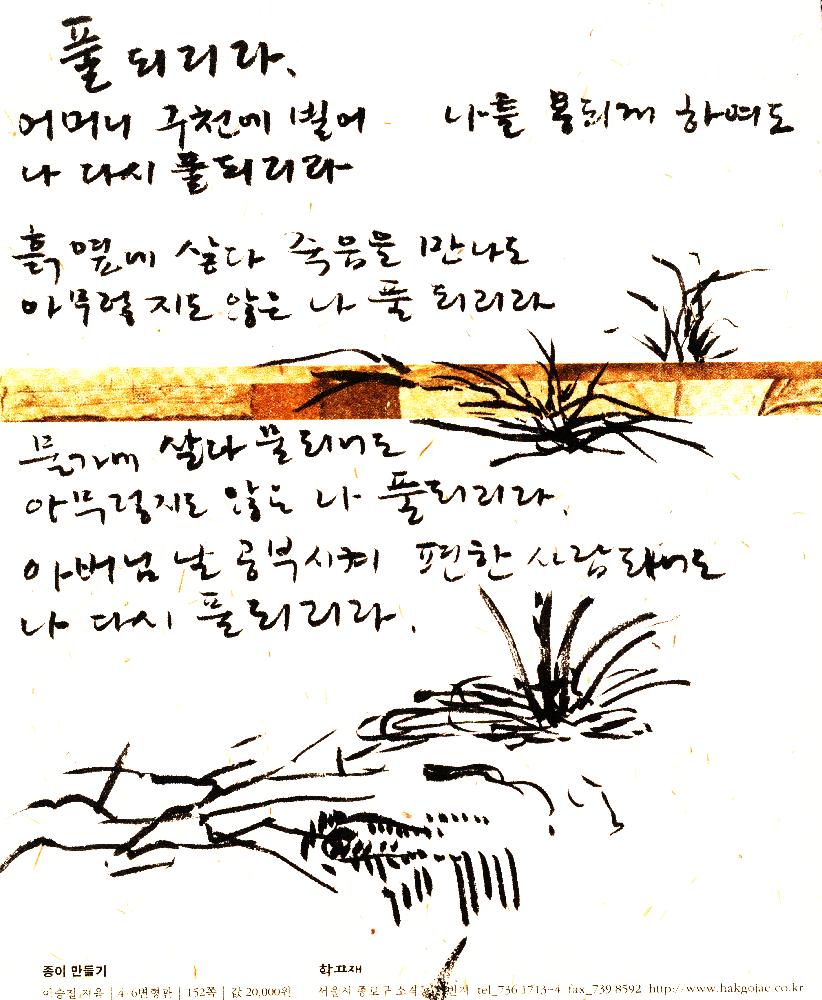 풀 되리라.
어머니 구천에 빌어 나를 용되게 하여도
나 다시 풀되리라
흙 옆에 살다 죽음을 만나도
아무렇지도 않은 나 풀 되리라
물가에 살다 물되어도
아무렇지도 않은 나 풀되리라.
아버님 날 공부시켜 편한 사람 되어도
나 다시 풀되리라.
종이 만들기 학고재
이승철 지음 | 4·6변형판 | 152쪽 | 값 20,000원 서울시 종로구 tel_736 1713~4 fax_739 8592 http://www.hakgojae.co.kr